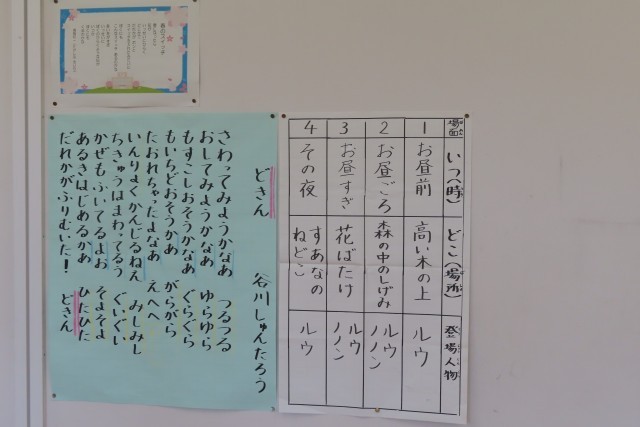 どきん
谷川しゅんたろう
さわってみようかなあ　つるつる
おしてみようかなあ　ゆらゆら
もすこしおそうかなあ　ぐらぐら
もいちどおそうかあ　がらがら
たおれちゃったよなあ　えへへ
いんりょくかんじるねえ　みしみし
ちきゅうはまわってるう　ぐいぐい
かぜもふいてるよお　そよそよ
あるきはじめるかあ　ひたひた
だれかがふりむいた！　どきん
場面　いつ(時)　どこ(場所)　登場人物
1　お昼前　高い木の上　ルウ
2　お昼ごろ　森の中のしげみ　ルウ　ノノン
3　お昼すぎ　花ばたけ　ルウ　ノノン
4　その夜　すあなのねどこ　ルウ